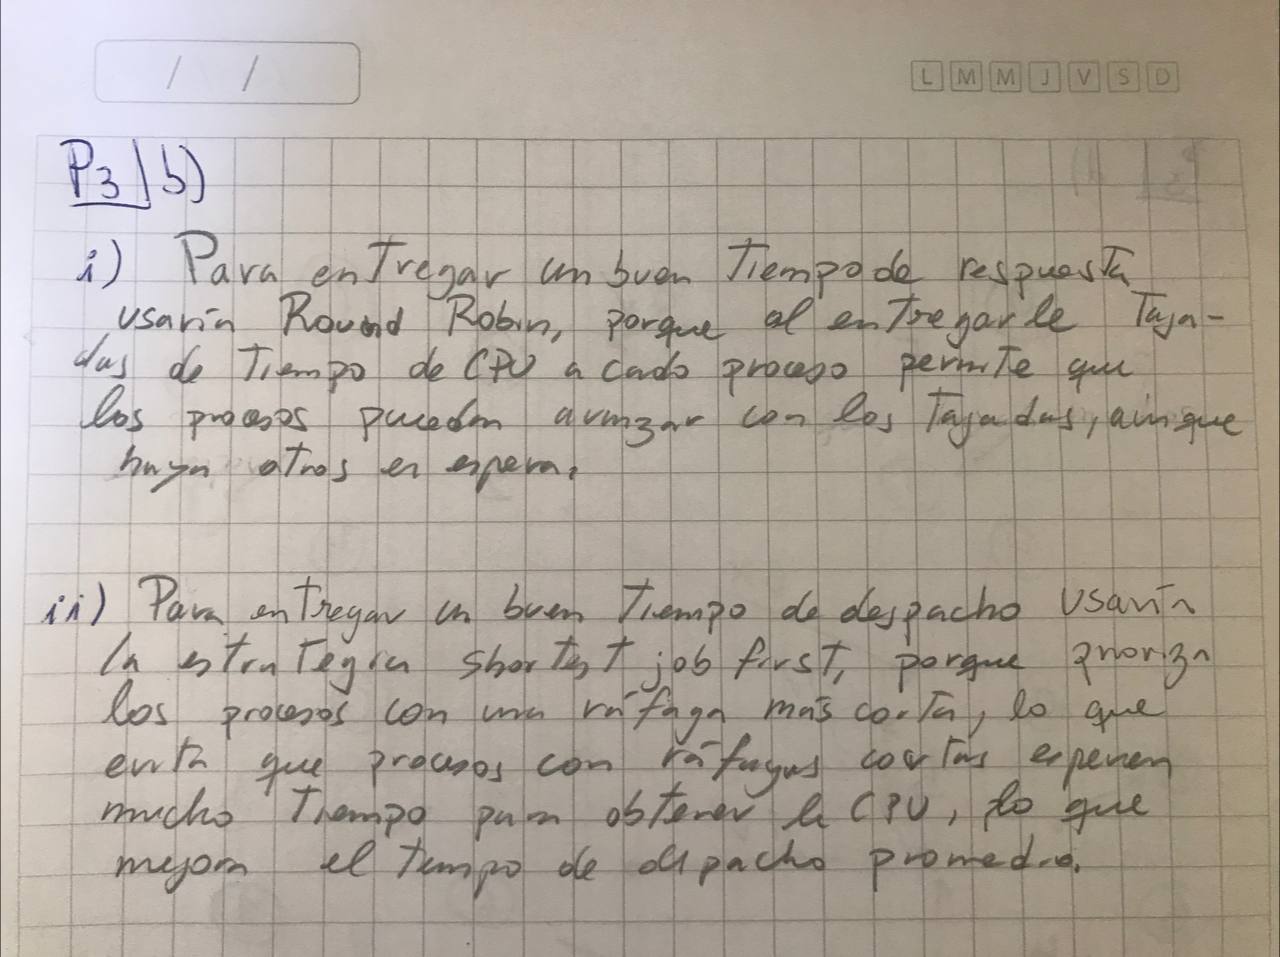 / /
L M M J V S D
P3 | b)
i) Para entregar un buen Tiempo de respuesta
usaría Round Robin, porque al entregarle Taja-
das de Tiempo de CPU a cado proceso permite que
los procesos puedan avanzar con las Tajadas, aunque
haya otros en espera.
ii) Para entregar un buen Tiempo de despacho usaría
la estrategia shortest job first, porque prioriza
los procesos con una ráfaga más corta, lo que
evita que procesos con ráfagas cortas esperen
mucho Tiempo para obtener la CPU, lo que
mejora el tiempo de despacho promedio.